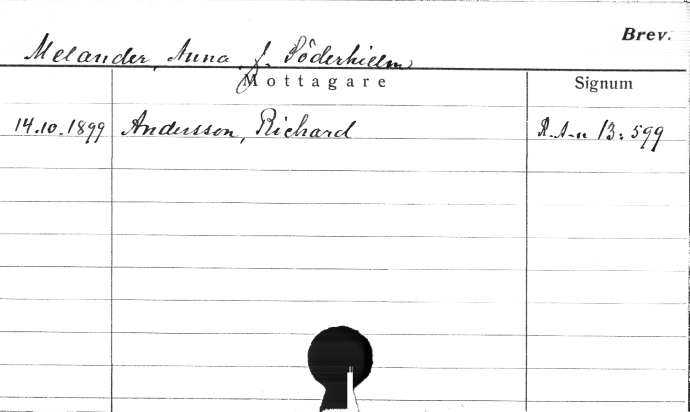 Brev.
Melander, Anna, f. Söderhielm
Mottagare Signum
14.10.1899 Andersson, Richard R.A-n 13:599